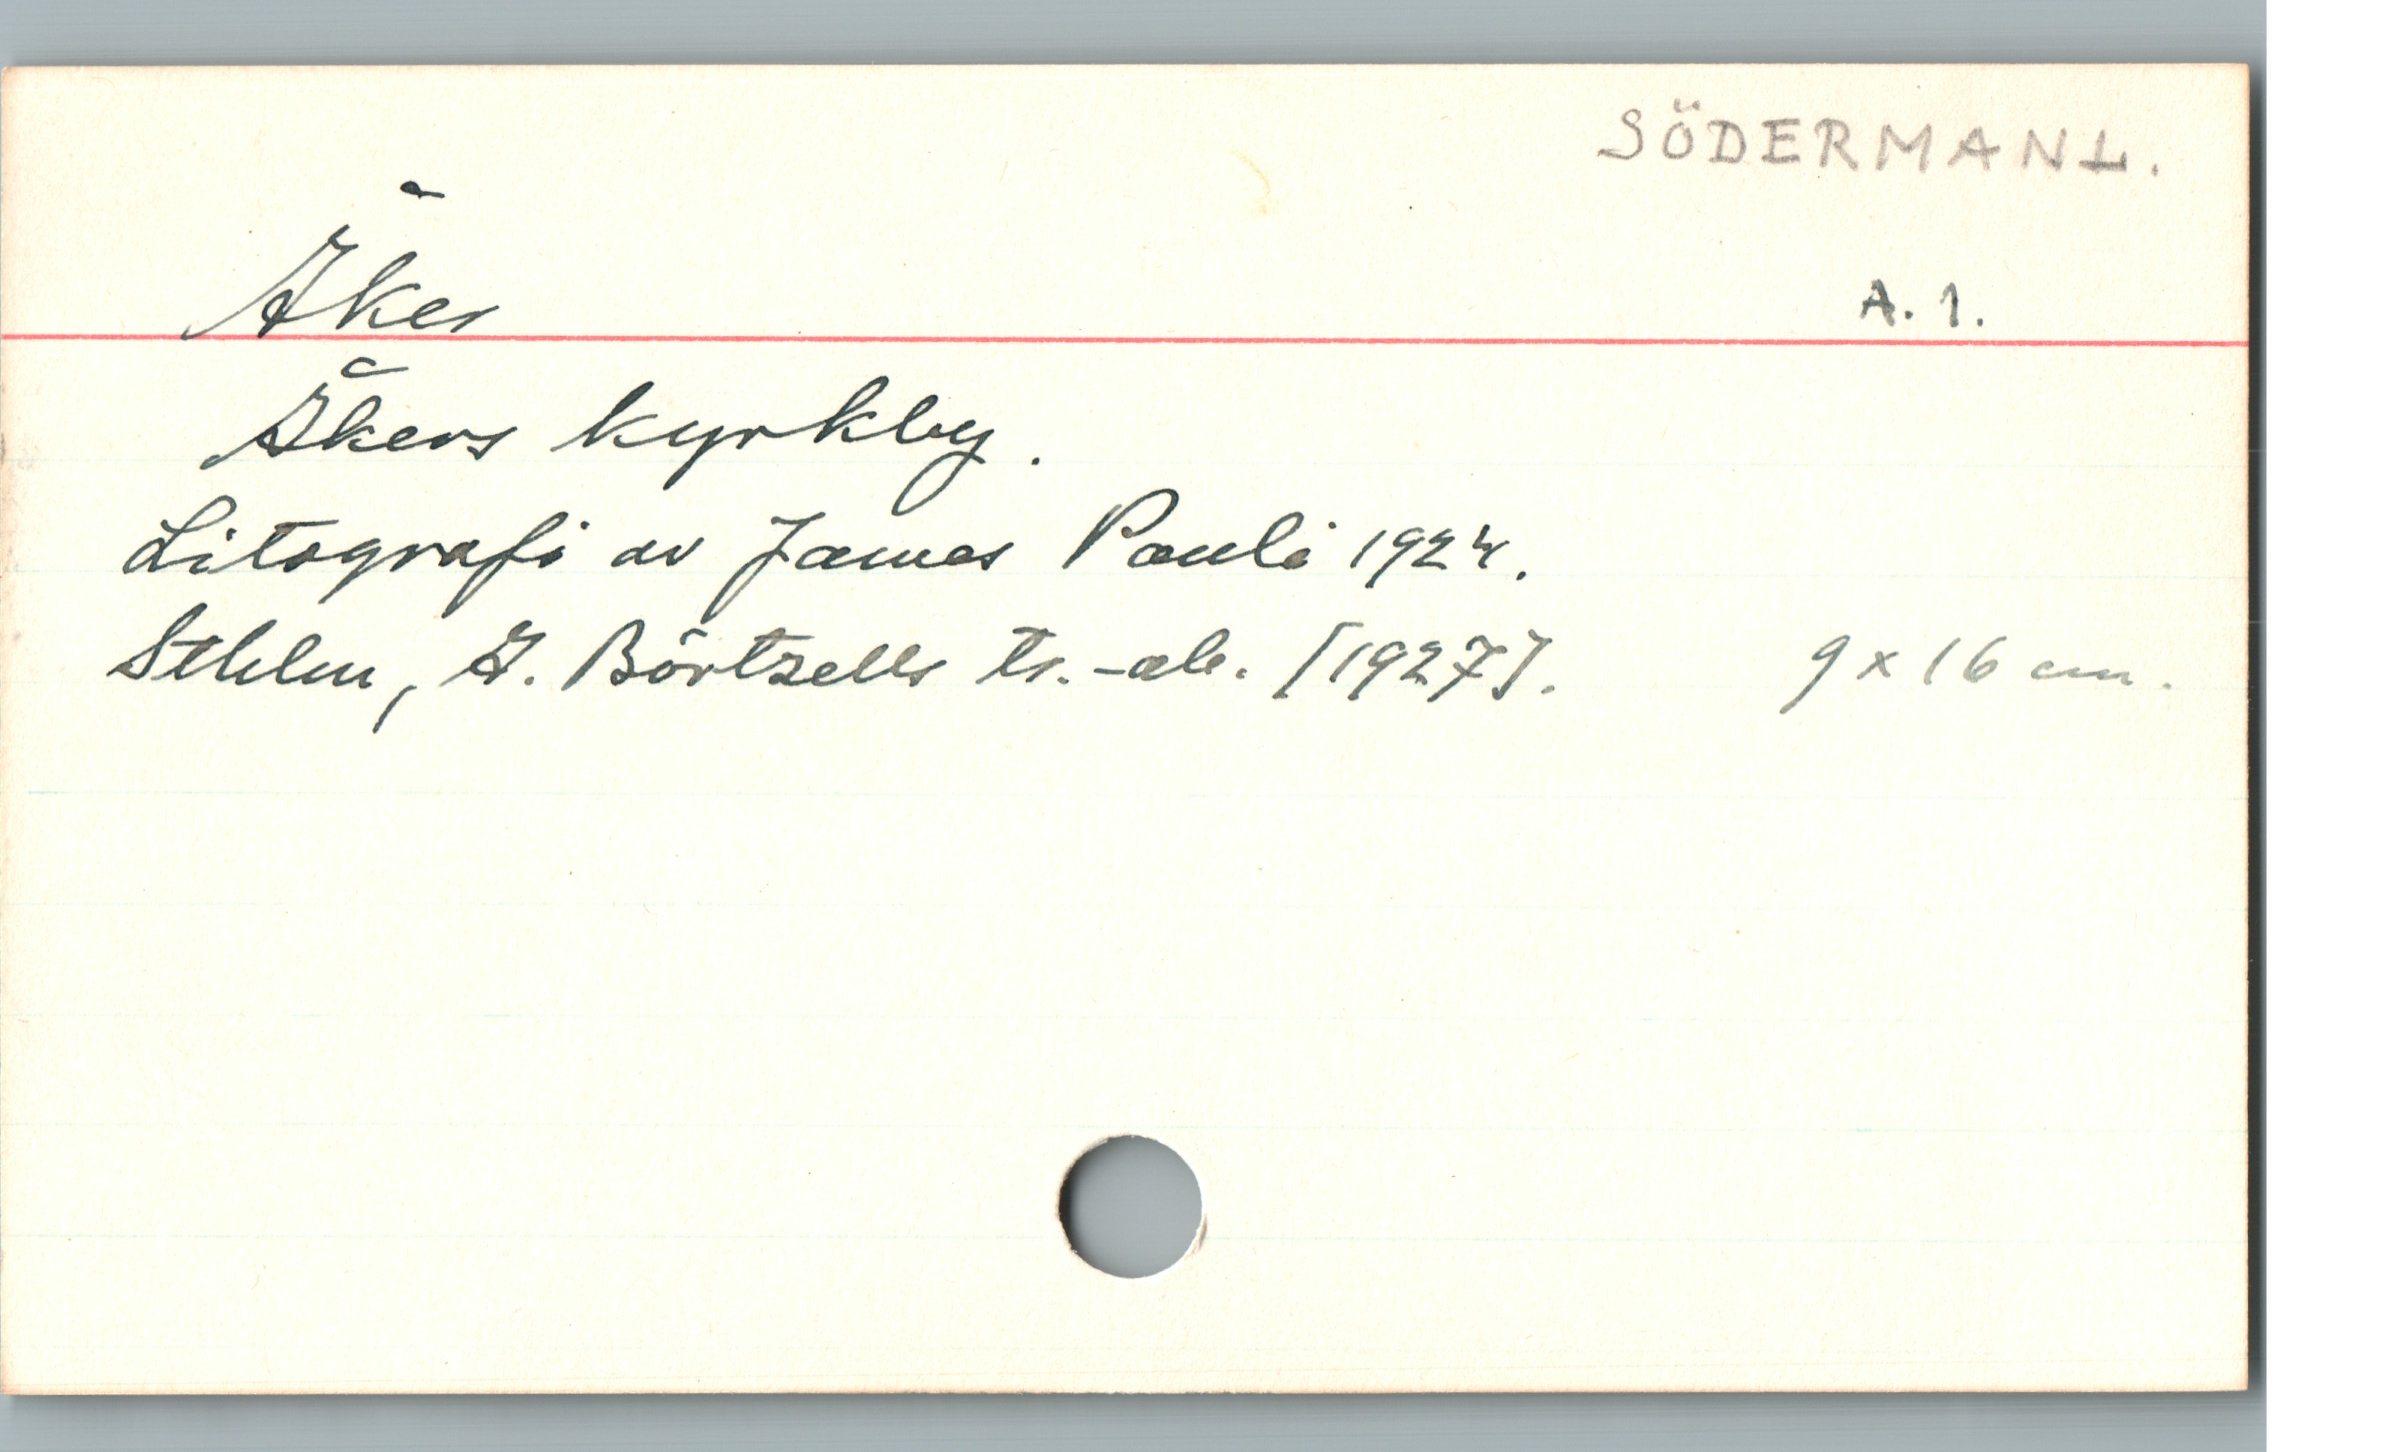 SÖDERMANL.
Åker
A. 1.
Åkers kyrkby.
Litografi av James Pauli 1924.
Sthlm, G. Börtzells tr.-ab. [1927]. 9 x 16 cm.